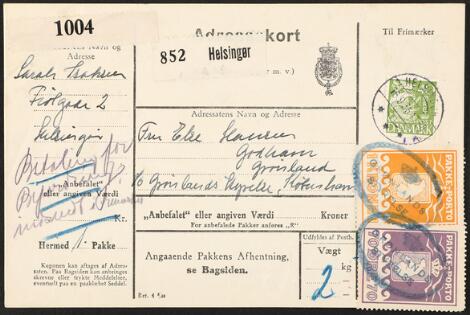 1004
Adresse
Sarah Isaksen
Fiolgade 2
Helsingør
Betaling for
"Anbefalet"
eller angiven Værdi
Kr.
Hermed 1 Pakke
Kuponen kan aftages af Adres-
saten. Paa Bagsiden kan anbringes
skrevne eller trykte Meddelelser,
eventuelt paa en paaklæbet Seddel.
kort
852 Helsingør
m. v.)
Adressatens Navn og Adresse
Fru Else Hansen
Godhavn
Grønland
c/o Grønlands Styrelse, København
"Anbefalet" eller angiven Værdi Kroner
For anbefalede Pakker anføres "R"
Angaaende Pakkens Afhentning,
se Bagsiden.
Udfyldes af Posth.
Vægt
2 kg
Til Frimærker
DANMARK
PAKKE-PORTO
PAKKE-PORTO
70